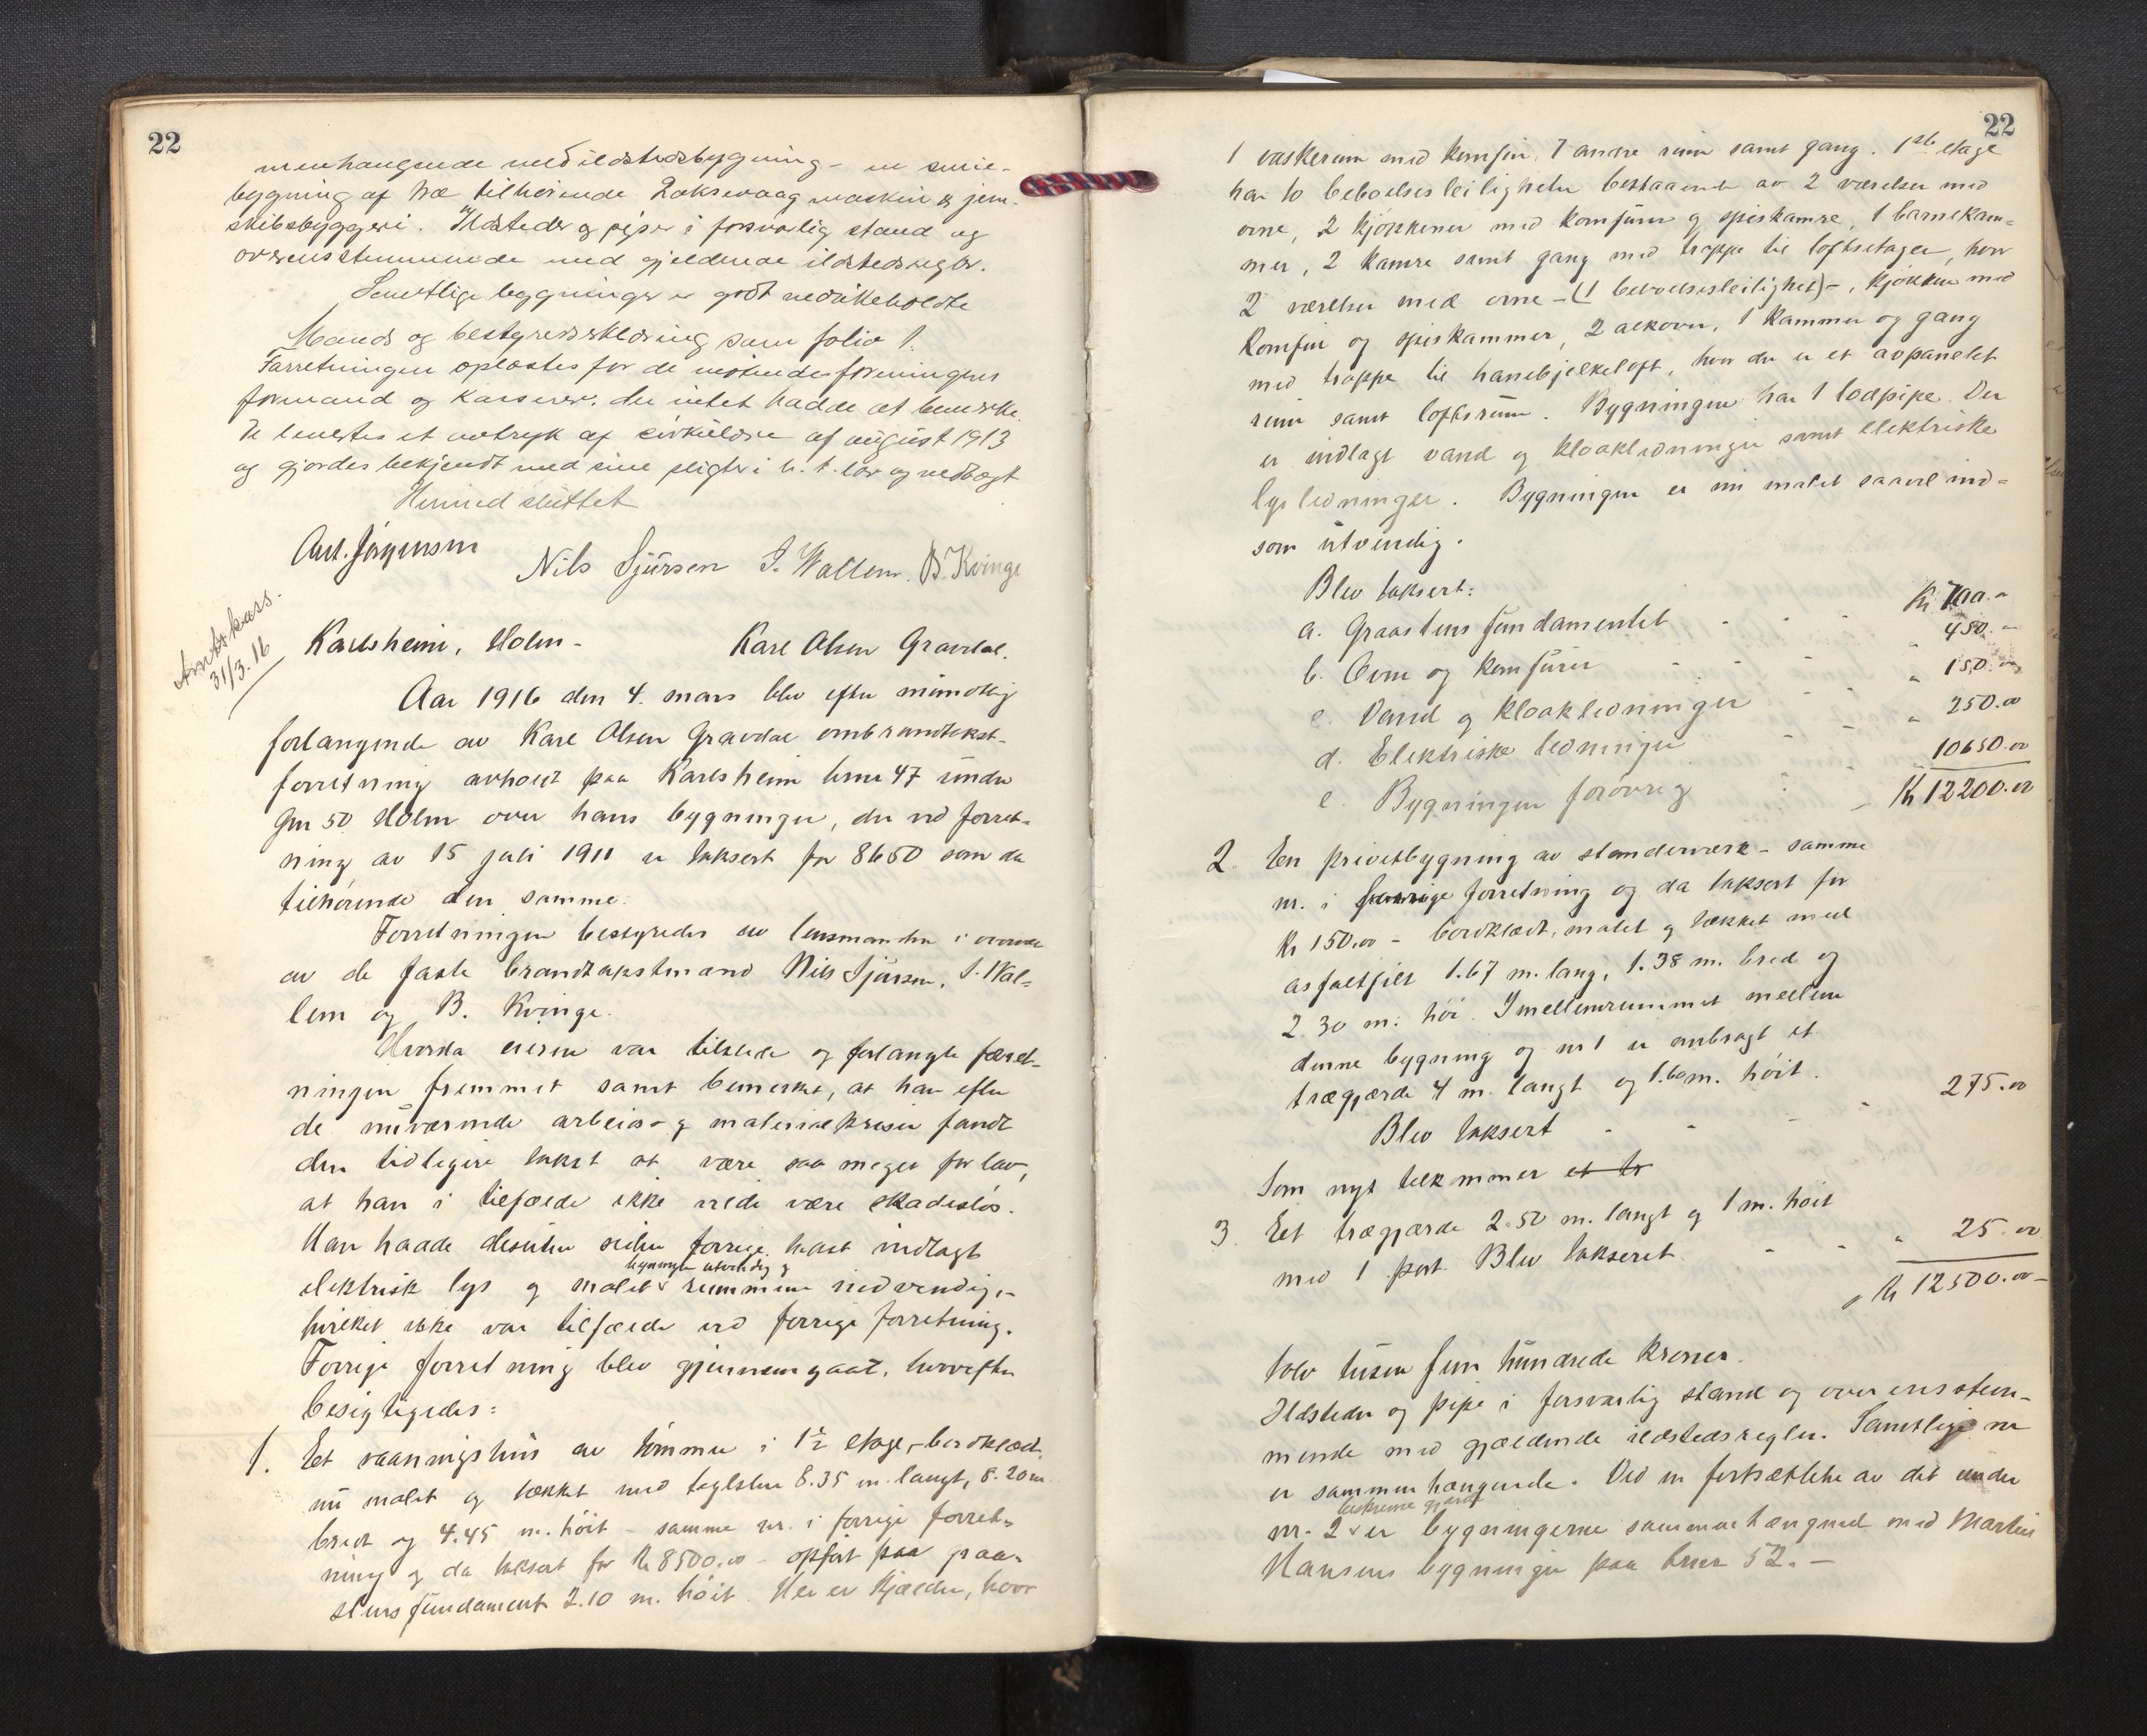 22
menhængende med ildstedsbygning - en smie-
bygning af træ tilhørende Laksevaag maskin & jern-
skibsbyggeri. Ildsteder og piper i forsvarlig stand og
overensstemmende med gjeldende ildstedsregler.
Samtlige bygninger er godt vedlikeholdte
Mands og bestyrerserklæring som folio 1.
Forretningen oplæstes for de mötende foreningens
formand og kasserer, der intet hadde at bemerke
De leveredes et avtryk af cirkulære af august 1913
og gjordes bekjendt med sine pligter i h. t. lov og vedtægt
Hermed sluttet
Ant. Jörgensen
Nils Sjursen S. Wallem. B. Kvinge
Amtskass.
31/3.16
Karlsheim, Holm - Karl Olsen Gravdal.
Aar 1916 den 4. mars blev efter mundtlig
forlangende av Karl Olsen Gravdal ombrandtakst-
forretning avholdt paa Karlsheim brnr 47 under
Gnr 50 Holm over hans bygninger, der ved forret-
ning av 15 juli 1911 er taksert for 8650 som da
tilhørende den samme.
Forretningen bestyredes av lensmanden i overvær
av de faste brandtakstmænd Nils Sjursen, S. Wal-
lem og B. Kvinge.
Hvorda eieren var tilstede og forlangte forret-
ningen fremmet samt bemerket, at han efter
de nuværende arbeids- og materialkriser fandt
den tidligere takst at være saa meget for lav,
at han i tilfælde ikke vilde være skadesløs.
Han hadde desuten siden forrige takst indlagt
bygningen utvendig og
elektrisk lys og malet rummene indvendig,-
hvilket ikke var tilfælde ved forrige forretning.
Forrige forretning blev gjennemgaat, hvorefter
besigtigedes:
1. Et vaaningshus av tømmer i 1½ etage,- bordklædt
nu malet og tækket med teglsten 8.35 m. langt, 8.20 m.
bredt og 4.45 m. høit - samme nr. i forrige forret-
ning og da taksert for Kr 8500.00 - opført paa graa-
stens fundament 2.10 m. høit. Her er kjælder, hvor
22
1 vaskerum med komfur, 7 andre rum samt gang. 1ste etage
har to beboelsesleiligheter bestaaende av 2 værelser med
ovne, 2 kjøkkener med komfurer og spiskamre, 1 barnekam-
mer, 2 kamre samt gang med trappe til loftsetagen, hvor
2 værelser med ovne - (1 beboelsesleilighet) -, kjøkken med
komfur og spiskammer, 2 alkover, 1 kammer og gang
med trappe til hanebjelkeloft, hvor der er et avpanelet
rum samt loftsrum. Bygningen har 1 lodpipe. Der
er indlagt vand og kloakledninger samt elektriske
lysledninger. Bygningen er nu malet saavel ind-
som utvendig.
Blev taksert:
a. Graastens fundamentet - - - Kr 700.-
b. Ovne og komfurer - - - " 450.-
c. Vand og kloakledninger - - " 150.00
d. Elektriske ledninger - - " 250.00
e. Bygningen forøvrig - - " 10650.00
Kr 12200.00
2. En privetbygning av stenderverk - samme
nr. i forrige forretning og da taksert for
Kr 150.00 - bordklædt, malet og tækket med
asfaltfilt 1.67 m. lang, 1.38 m. bred og
2.30 m. høi. I mellemrummet mellem
denne bygning og nr 1 er anbragt et
trægjærde 4 m. langt og 1.60 m. høit.
Blev taksert - - - - 275.00
Som nyt tilkommer et tr
3. Et trægjærde 2.50 m. langt og 1 m. høit
med 1 port. Blev taksert - - " 25.00
Kr 12500.00 -
tolv tusen fem hundrede kroner.
Ildsteder og pipe i forsvarlig stand og overensstem-
mende med gjældende ildstedsregler. Samtlige nr
er sammenhængende. Ved en fortsættelse av det under
beskrevne gjærde
nr. 2 er bygningerne sammenhængende med Martin
Hansens bygninger paa brnr 52. -